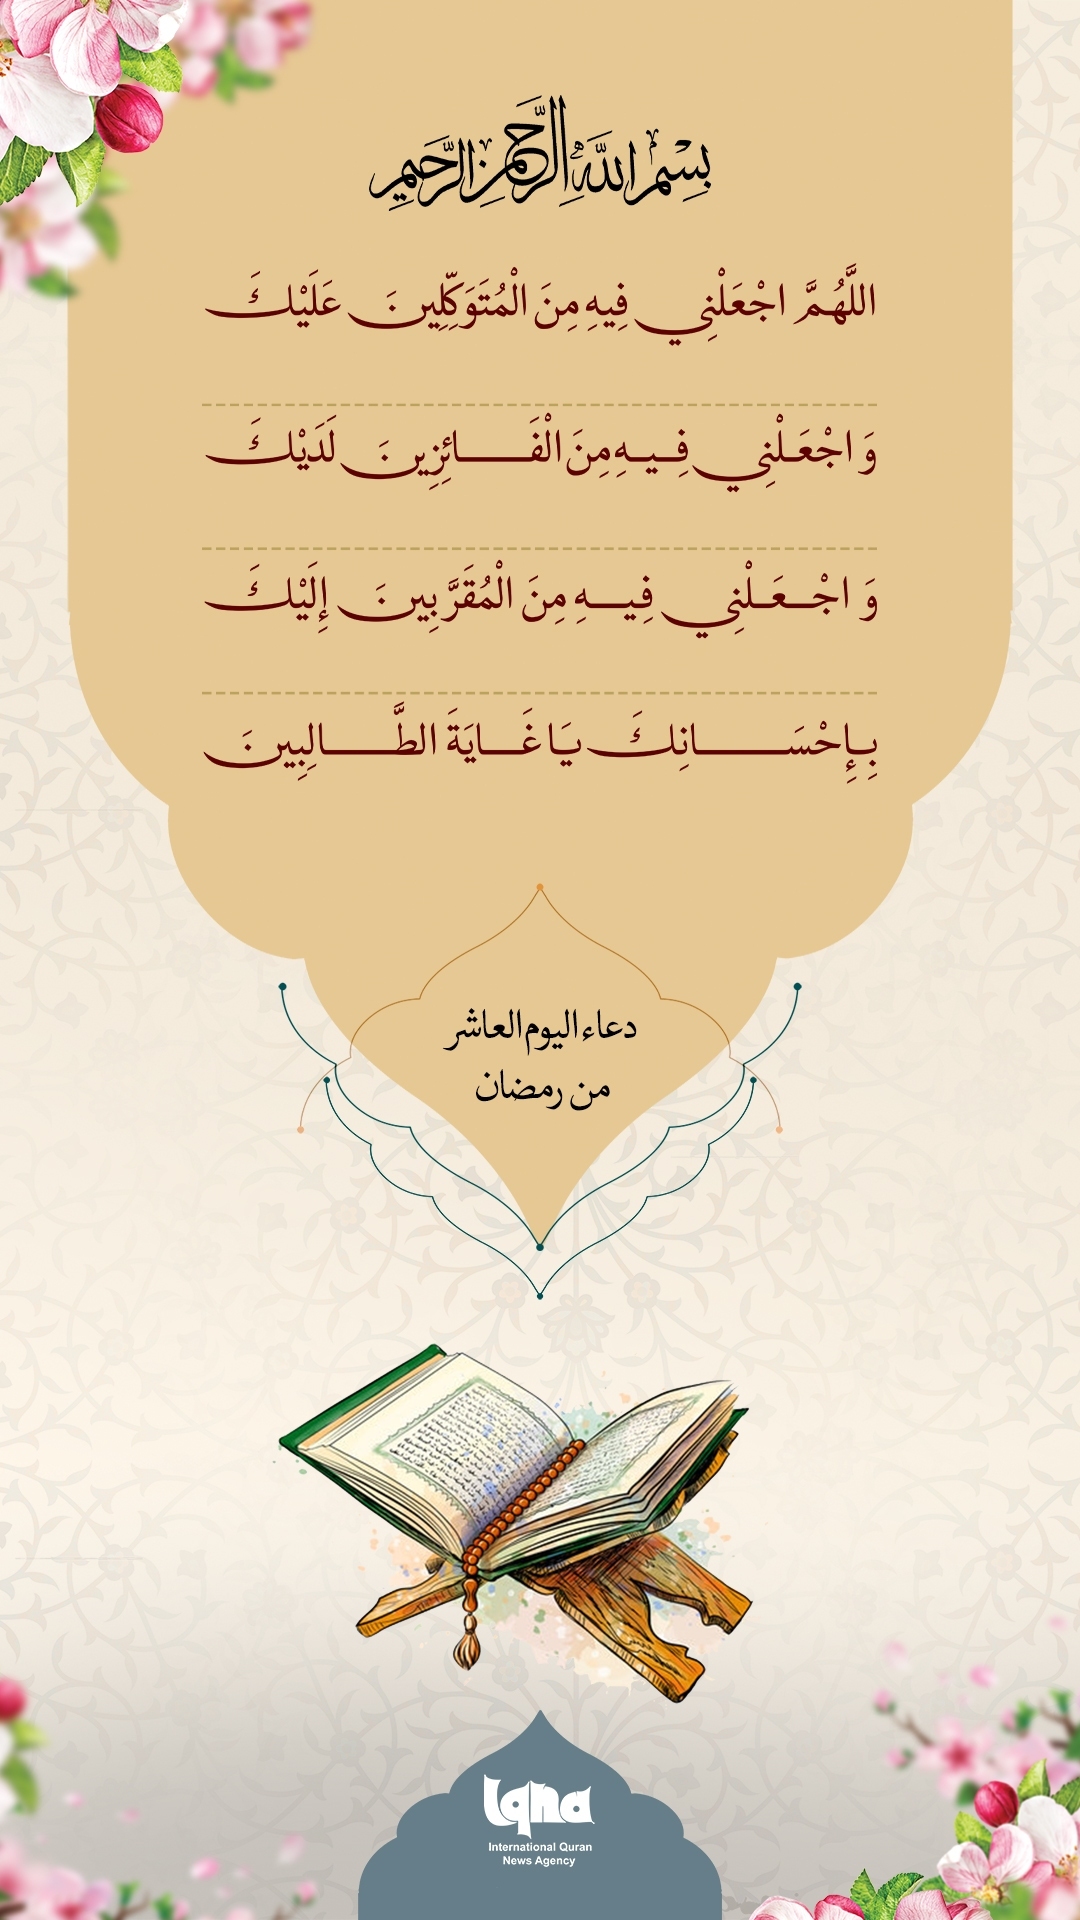 بِسْمِ اللَّهِ الرَّحْمَٰنِ الرَّحِيمِ
اللَّهُمَّ اجْعَلْنِي فِيهِ مِنَ الْمُتَوَكِّلِينَ عَلَيْكَ
وَ اجْعَلْنِي فِيهِ مِنَ الْفَائِزِينَ لَدَيْكَ
وَ اجْعَلْنِي فِيهِ مِنَ الْمُقَرَّبِينَ إِلَيْكَ
بِإِحْسَانِكَ يَا غَايَةَ الطَّالِبِينَ
دعاء اليوم العاشر
من رمضان
Iqna
International Quran
News Agency